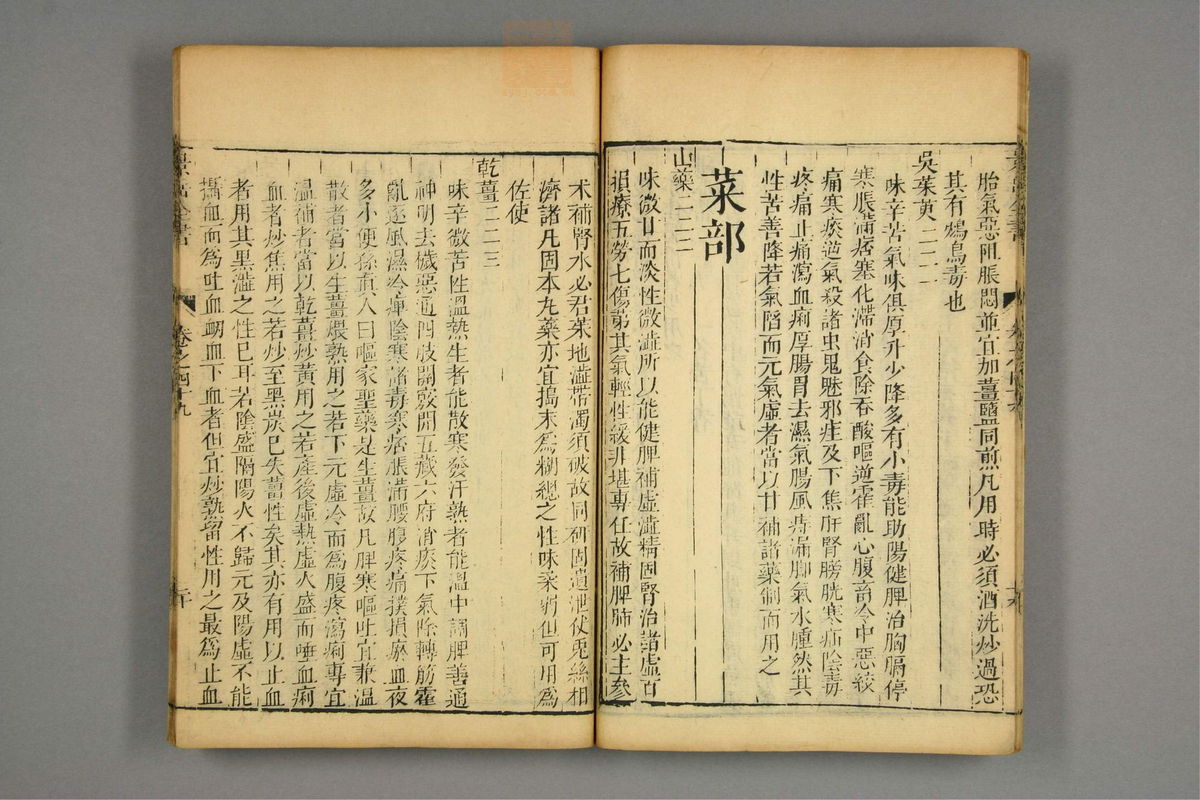 胎氣惡阻脹悶並宜加薑鹽同煎凡用時必須酒洗炒過恐
其有鴆鳥毒也
吳茱萸二二一
味辛苦氣味俱厚升少降多有小毒能助陽健脾治胸膈停
寒脹滿痞塞化滯消食除吞酸嘔逆霍亂心腹畜冷中惡絞
痛寒痰逆氣殺諸虫鬼魅邪疰及下焦肝腎膀胱寒疝陰毒
疼痛止痛瀉血痢厚腸胃去濕氣腸風痔漏脚氣水腫然其
性苦善降若氣陷而元氣虛者當以甘補諸藥制而用之
菜部
山藥二二二
味微甘而淡性微澁所以能健脾補虛澁精固腎治諸虛百
損療五勞七傷第其氣輕性緩非堪專任故補脾肺必主參
术補腎水必君茱地澁帶濁須破故同研固遺泄仗兎絲相
濟諸凡固本丸藥亦宜搗末為糊總之性味柔弱但可用為
佐使
乾薑二二三
味辛微苦性溫熱生者能散寒發汗熟者能溫中調脾善通
神明去穢惡通四肢關竅開五藏六府消痰下氣除轉筋霍
亂逐風濕冷痺陰寒諸毒寒痞脹滿腰腹疼痛撲損瘀血夜
多小便孫真人曰嘔家聖藥是生薑故凡脾寒嘔吐宜兼溫
散者當以生薑煨熟用之若下元虛冷而為腹疼瀉痢專宜
溫補者當以乾薑炒黃用之若產後虛熱虛火盛而唾血痢
血者炒焦用之若炒至黑炭已失薑性矣其亦有用以止血
者用其黑澁之性已耳若陰盛隔陽火不歸元及陽虛不能
攝血而為吐血衂血下血者但宜炒熟留性用之最為止血
景岳全書
卷之四十九